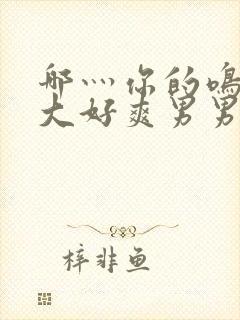 哪灬你的鸣
大好爽男男
梓非鱼